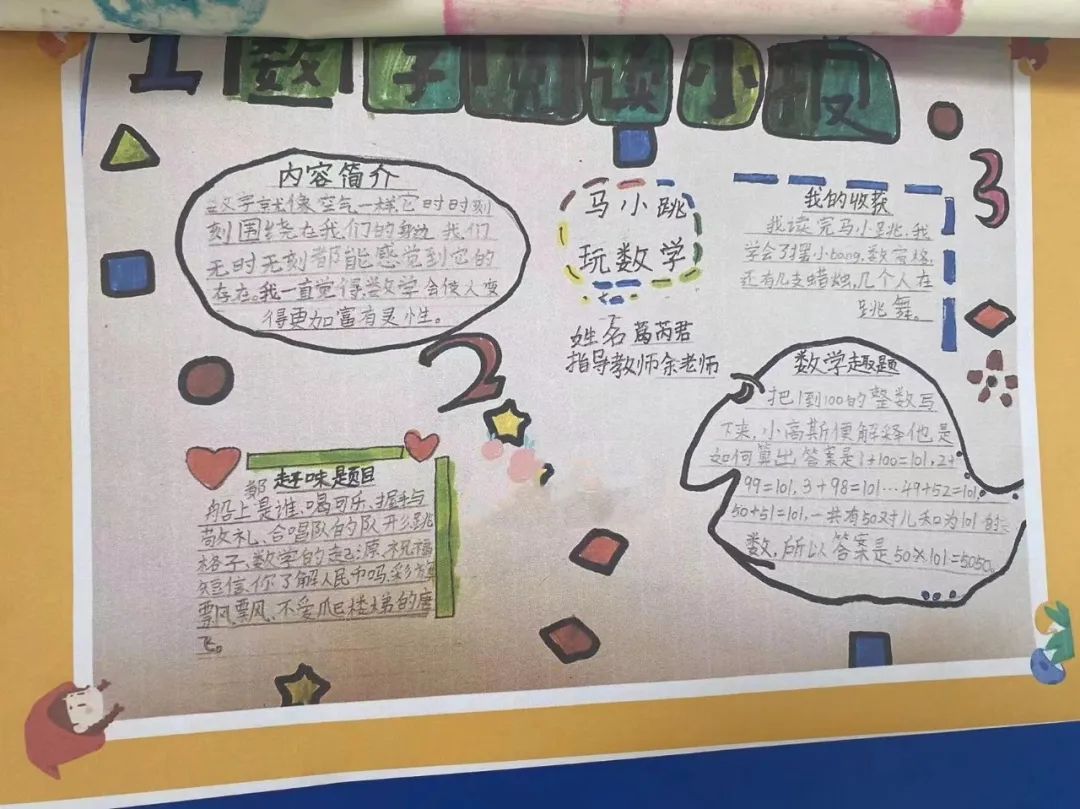 1 数学阅读小报
内容简介
数字就像空气一样,它时时刻
刻围绕在我们的身边 我们
无时无刻都能感觉到它的
存在。我一直觉得,数学会使人变
得更加富有灵性。
马小跳
玩数学
姓名 芮君
指导教师余老师
3
我的收获
我读完马小跳,我
学会了摆小bang,数窗格,
还有几支蜡烛,几个人在
跳舞。
2
数学趣题
把1到100的整数写
下来,小高斯便解释他是
如何算出答案是1+100=101,2+
99=101,3+98=101…49+52=101,
50+51=101,一共有50对儿和为101的
数,所以答案是50×101=5050。
趣味题目
船上是谁、喝可乐、握手与
敬礼、合唱队的队形、跳
格子、数学的起源、祝福
短信、你了解人民币吗、彩旗
飘飘、不爱爬楼梯的唐
飞。